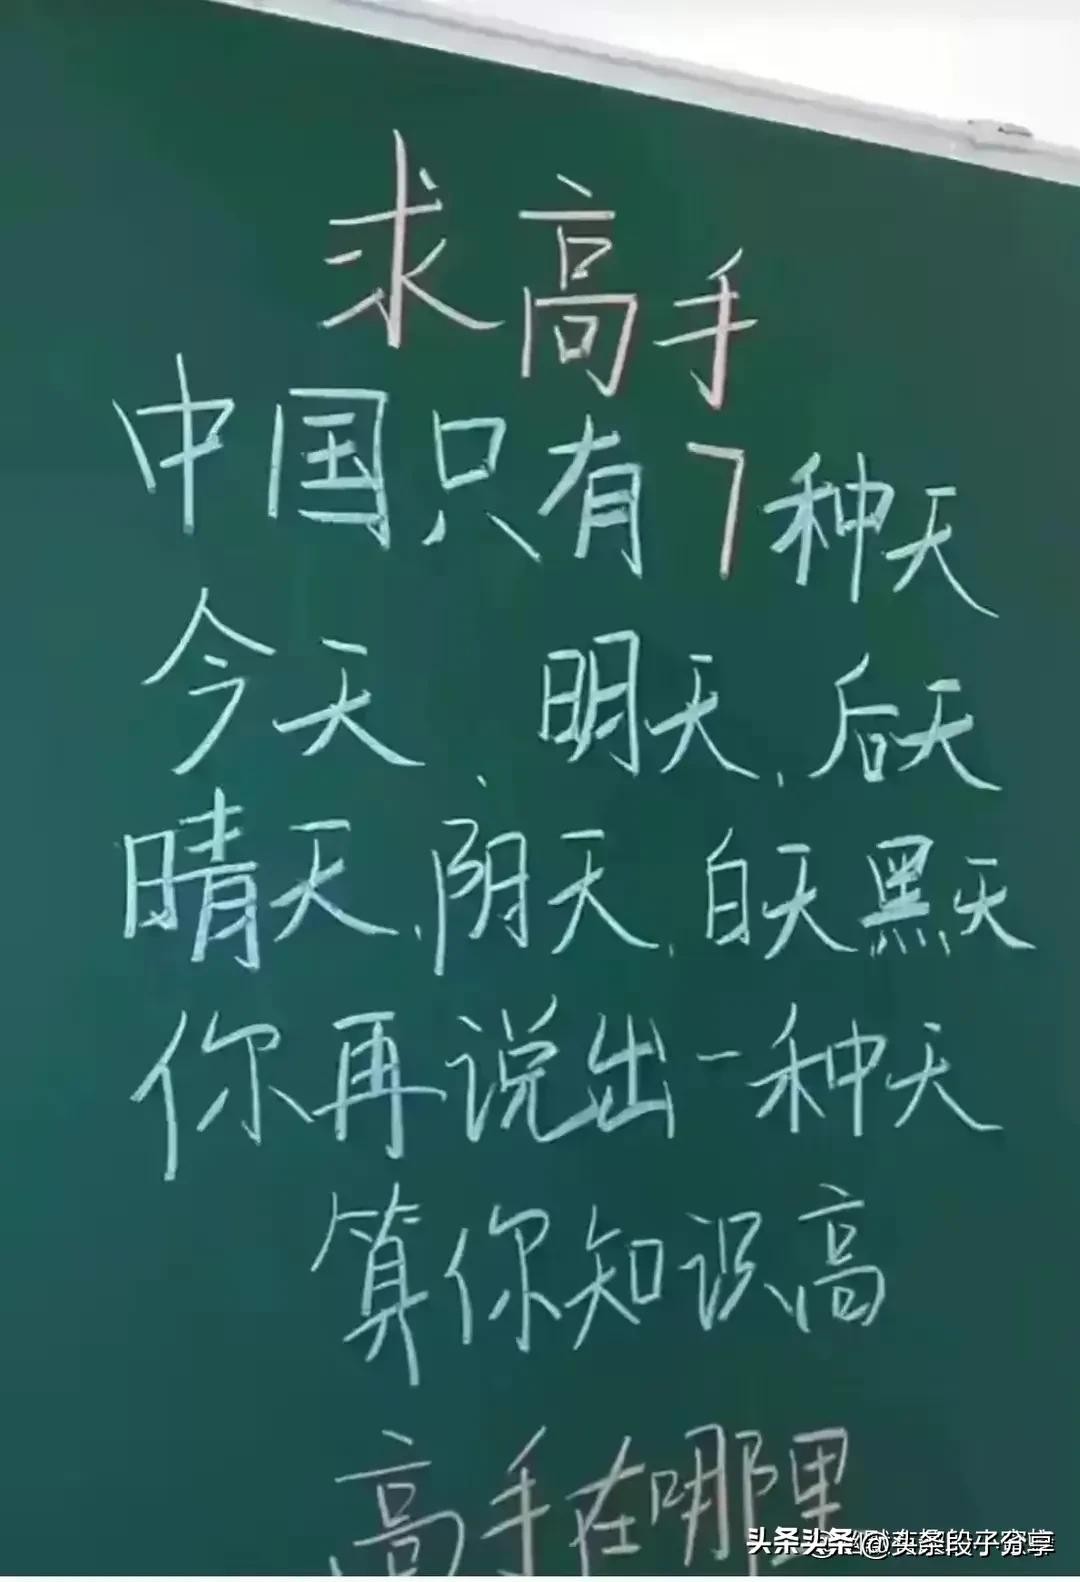 求高手
中国只有7种天
今天、明天、后天
晴天、阴天、白天黑天
你再说出一种天
算你知识高
高手在哪里
头条头条 @头条段子分享